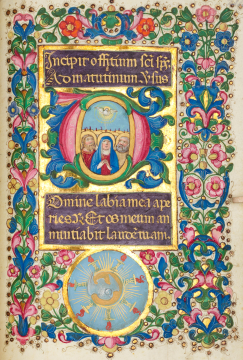 Incipit offitium sci sp̄s
Ad matutinum Vꝰsus
Domine labia mea ape
ries R Et os meum an
nuntiabit laudē tuam.